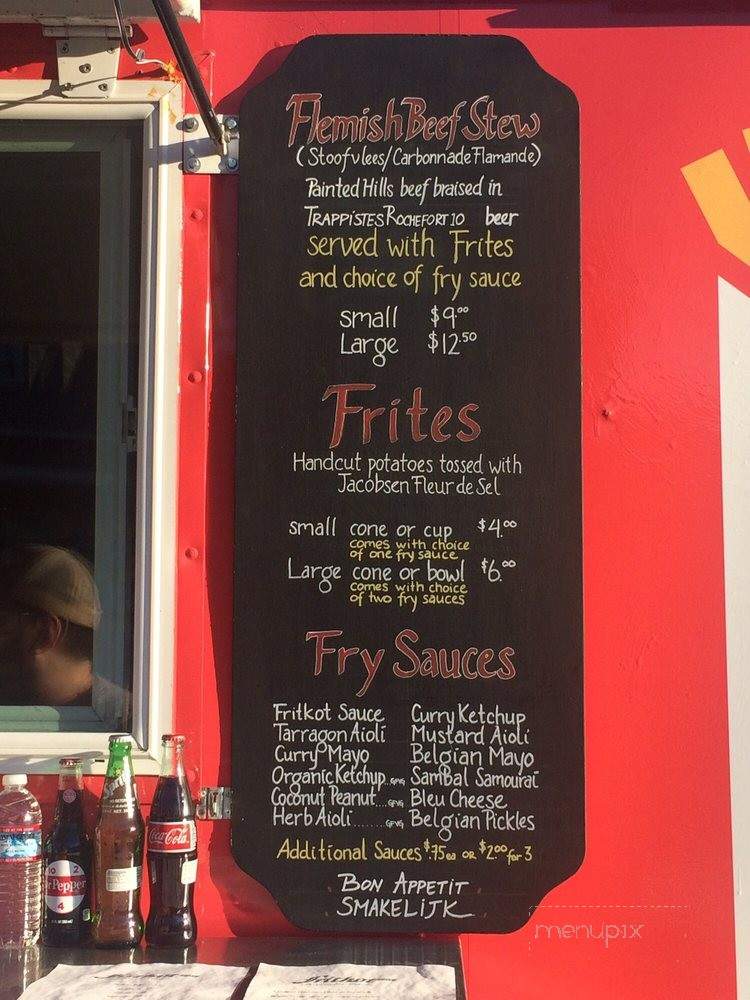 Flemish Beef Stew
(Stoofvlees/Carbonnade Flamande)
Painted Hills beef braised in
TRAPPISTES ROCHEFORT 10 beer
served with Frites
and choice of fry sauce
small $9.00
Large $12.50
Frites
Handcut potatoes tossed with
Jacobsen Fleur de Sel
small cone or cup $4.00
comes with choice
of one fry sauce
Large cone or bowl $6.00
comes with choice
of two fry sauces
Fry Sauces
Fritkot Sauce Curry Ketchup
Tarragon Aioli Mustard Aioli
Curry Mayo Belgian Mayo
Organic Ketchup...GFVG Sambal Samourai
Coconut Peanut...GFVG Bleu Cheese
Herb Aioli.........GFVG Belgian Pickles
Additional Sauces $.75 ea OR $2.00 for 3
BON APPETIT
SMAKELIJK
Dr Pepper
10 2
4
Sprite
Coca-Cola
menupix